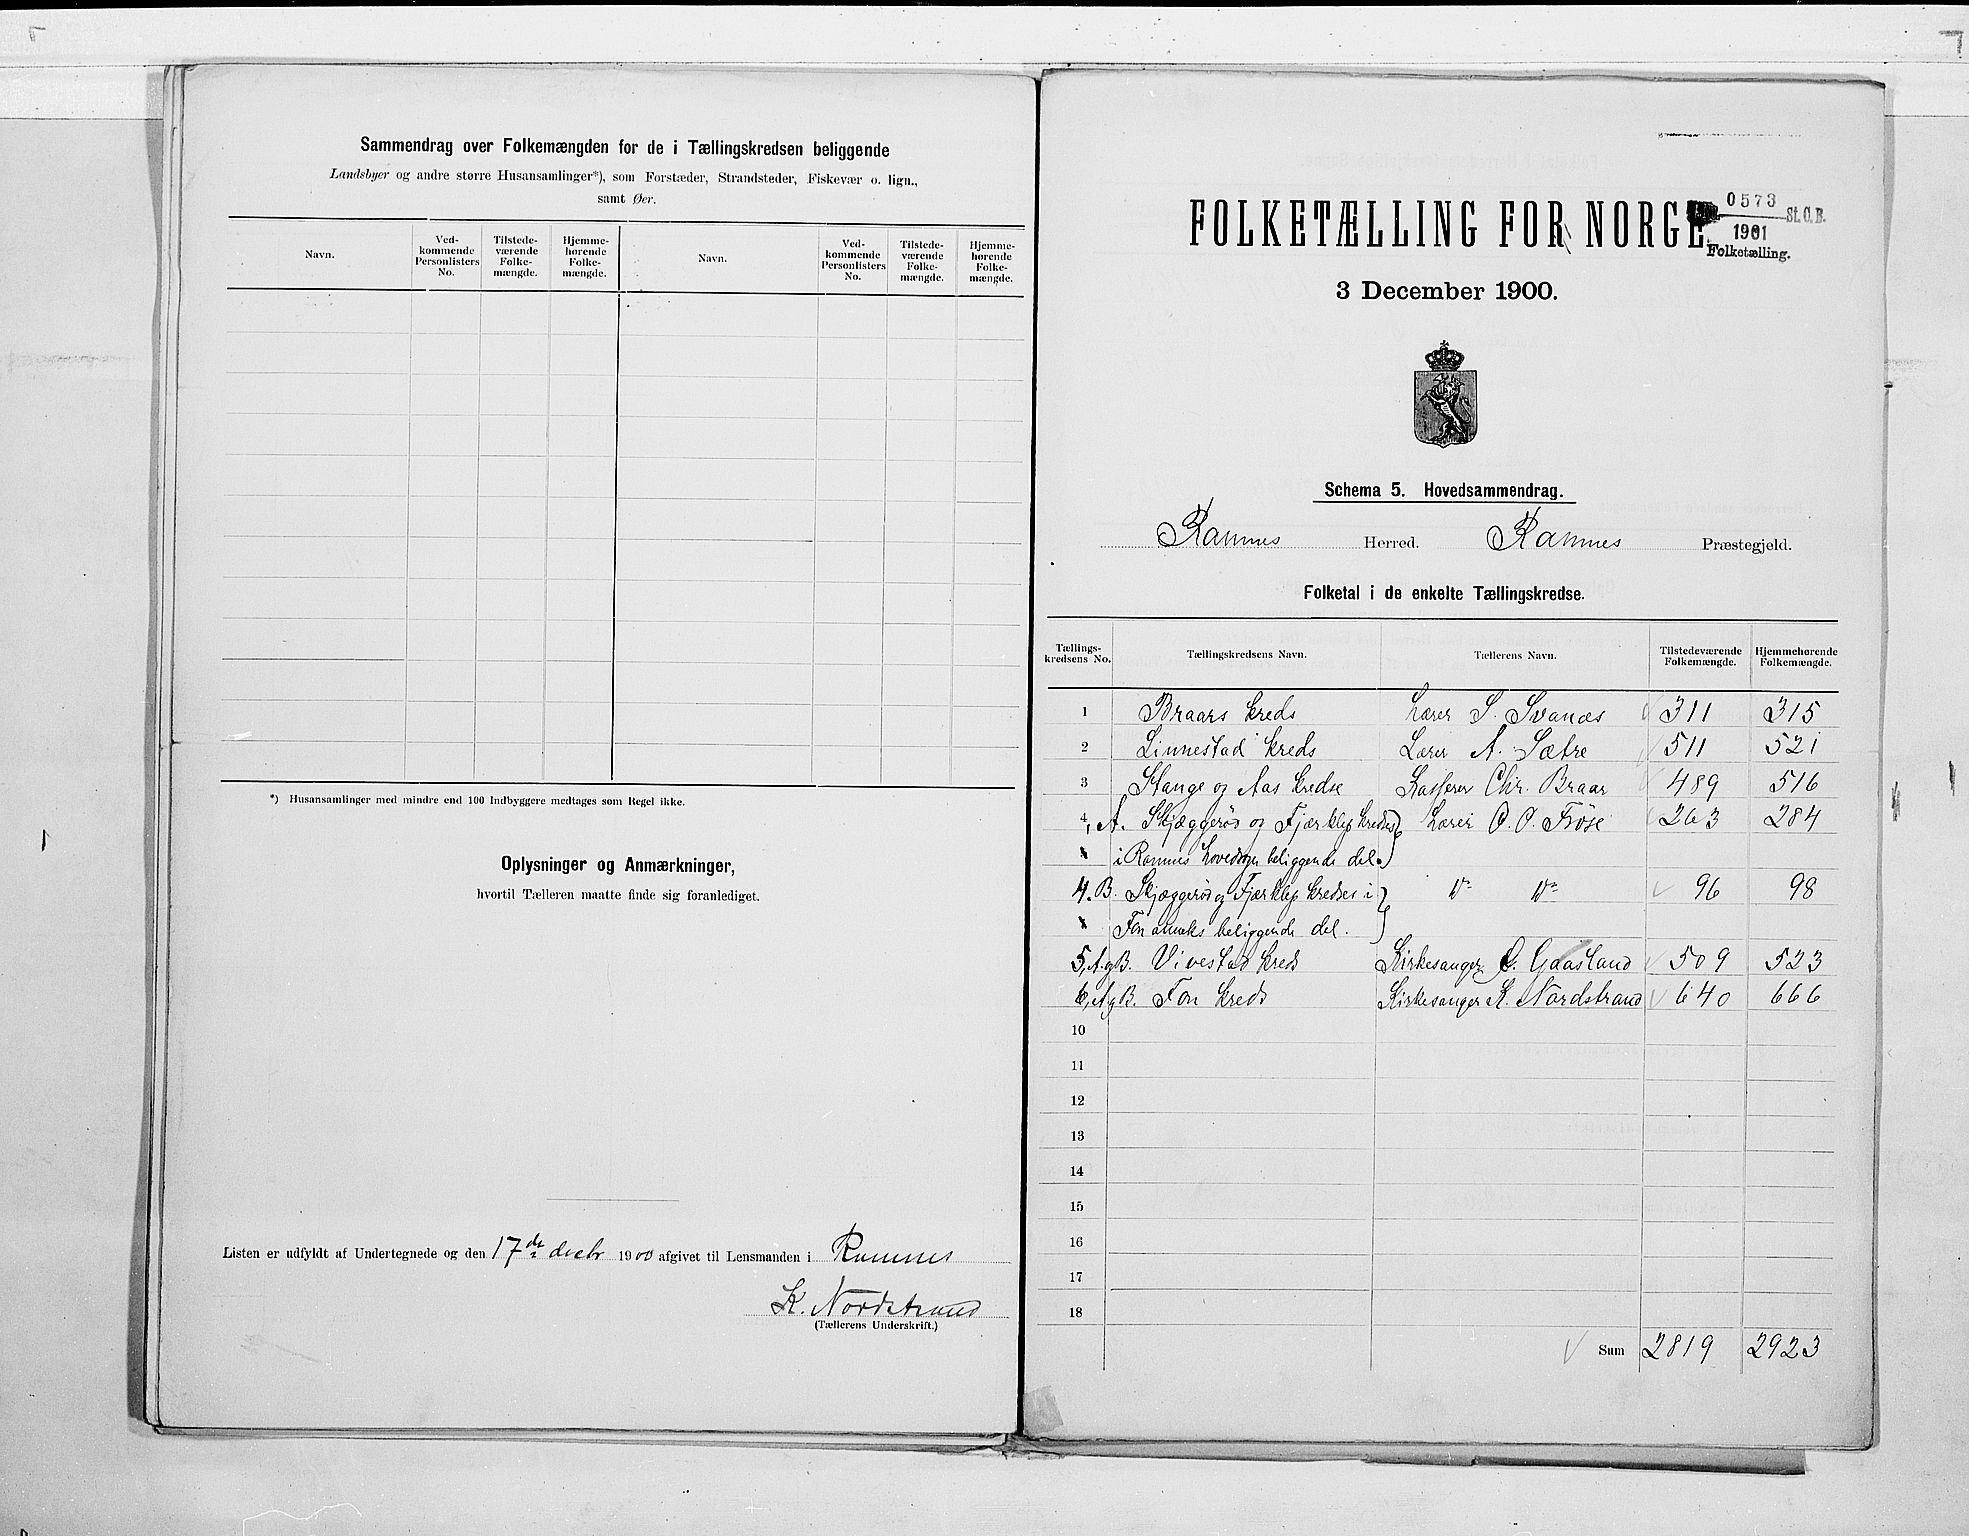 Sammendrag over Folkemængden for de i Tællingskredsen beliggende
Landsbyer og andre større Husansamlinger*), som Forstæder, Strandsteder, Fiskevær o. lign.,
samt Øer.
Navn. Ved-kommende Personlisters No. Tilstede-værende Folke-mængde. Hjemme-hørende Folke-mængde. Navn. Ved-kommende Personlisters No. Tilstede-værende Folke-mængde. Hjemme-hørende Folke-mængde.
*) Husansamlinger med mindre end 100 Indbyggere medtages som Regel ikke.
Oplysninger og Anmærkninger,
hvortil Tælleren maatte finde sig foranlediget.
Listen er udfyldt af Undertegnede og den 17de decbr 1900 afgivet til Lensmanden i Ramnes
K. Nordstrand
(Tællerens Underskrift.)
FOLKETÆLLING FOR NORGE
0573 St.C.B.
1901
Folketælling.
3 December 1900.
Schema 5. Hovedsammendrag.
Ramnes Herred. Ramnes Præstegjeld.
Folketal i de enkelte Tællingskredse.
Tællings-kredsens No. Tællingskredsens Navn. Tællerens Navn. Tilstedeværende Folkemængde. Hjemmehørende Folkemængde.
1 Braars kreds Lærer S. Svanæs 311 315
2 Linnestad kreds Lærer A. Sætre 511 521
3 Stange og Aas kredse Kasserer Chr. Braar 489 516
4, A. Skjæggerød og Fjærklep kredses Lærer O. O. Frøse 263 284
i Ramnes hovedsogn beliggende del.
4. B. Skjæggerød og Fjærklep kredses i do do 96 98
Fon anneks beliggende del.
5, A. og B. Vivestad kreds Kirkesanger C. Gaasland 509 523
6, A. og B. Fon kreds Kirkesanger K. Nordstrand 640 666
10
11
12
13
14
15
16
17
18
Sum 2819 2923